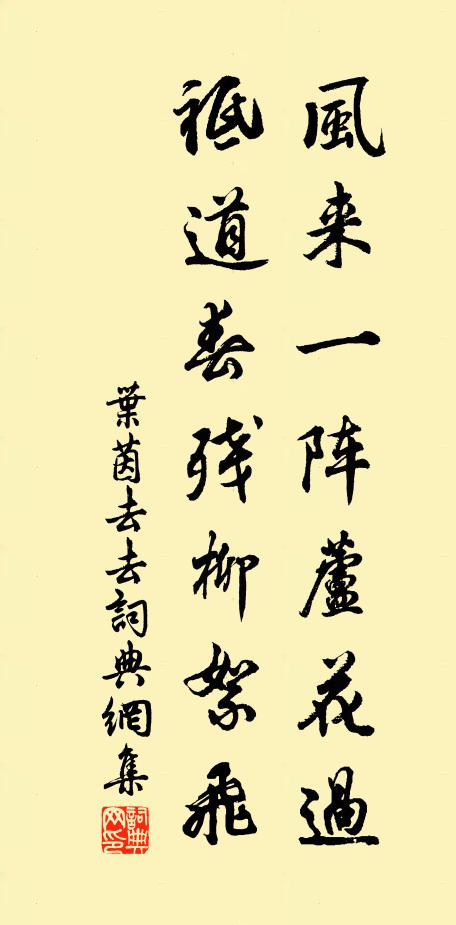 風来一阵蘆花過
祗道春残柳絮飛
葉茵去去詞典網集
詞典网印